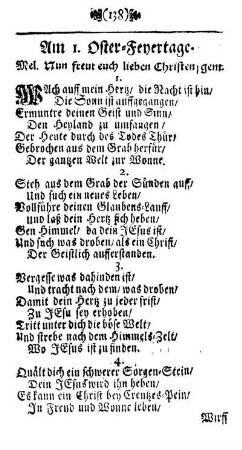 (138)
Am 1. Oster-Feyertage.
Mel. Nun freut euch lieben Christen/ gem.
1.
WAch auf mein Hertz/ die Nacht ist hin/
Die Sonn ist auffgegangen/
Ermuntre deinen Geist und Sinn/
Den Heyland zu umfangen/
Der Heute durch des Todes Thür/
Gebrochen aus dem Grab herfür/
Der gantzen Welt zur Wonne.
2.
Steh aus dem Grab der Sünden auff/
Und such ein neues Leben/
Vollführe deinen Glaubens-Lauff/
und laß dein Hertz sich heben/
Gen Himmel/ da dein JEsus ist/
Und such was droben/ als ein Christ/
Der Geistlich aufferstanden.
3.
Vergesse was dahinden ist/
Und tracht nach dem/ was droben/
Damit dein Hertz zu jeder frist/
Zu JEsu sey erhoben/
Tritt unter dich die böse Welt/
Und strebe nach dem Himmels-Zelt/
Wo JEsus ist zu finden.
4.
Quält dich ein schwerer Sorgen-Stein/
Dein JEsus wird ihn heben/
Es kann ein Christ bey Creutzes-Pein/
In Freud und Wonne leben/
Wirff